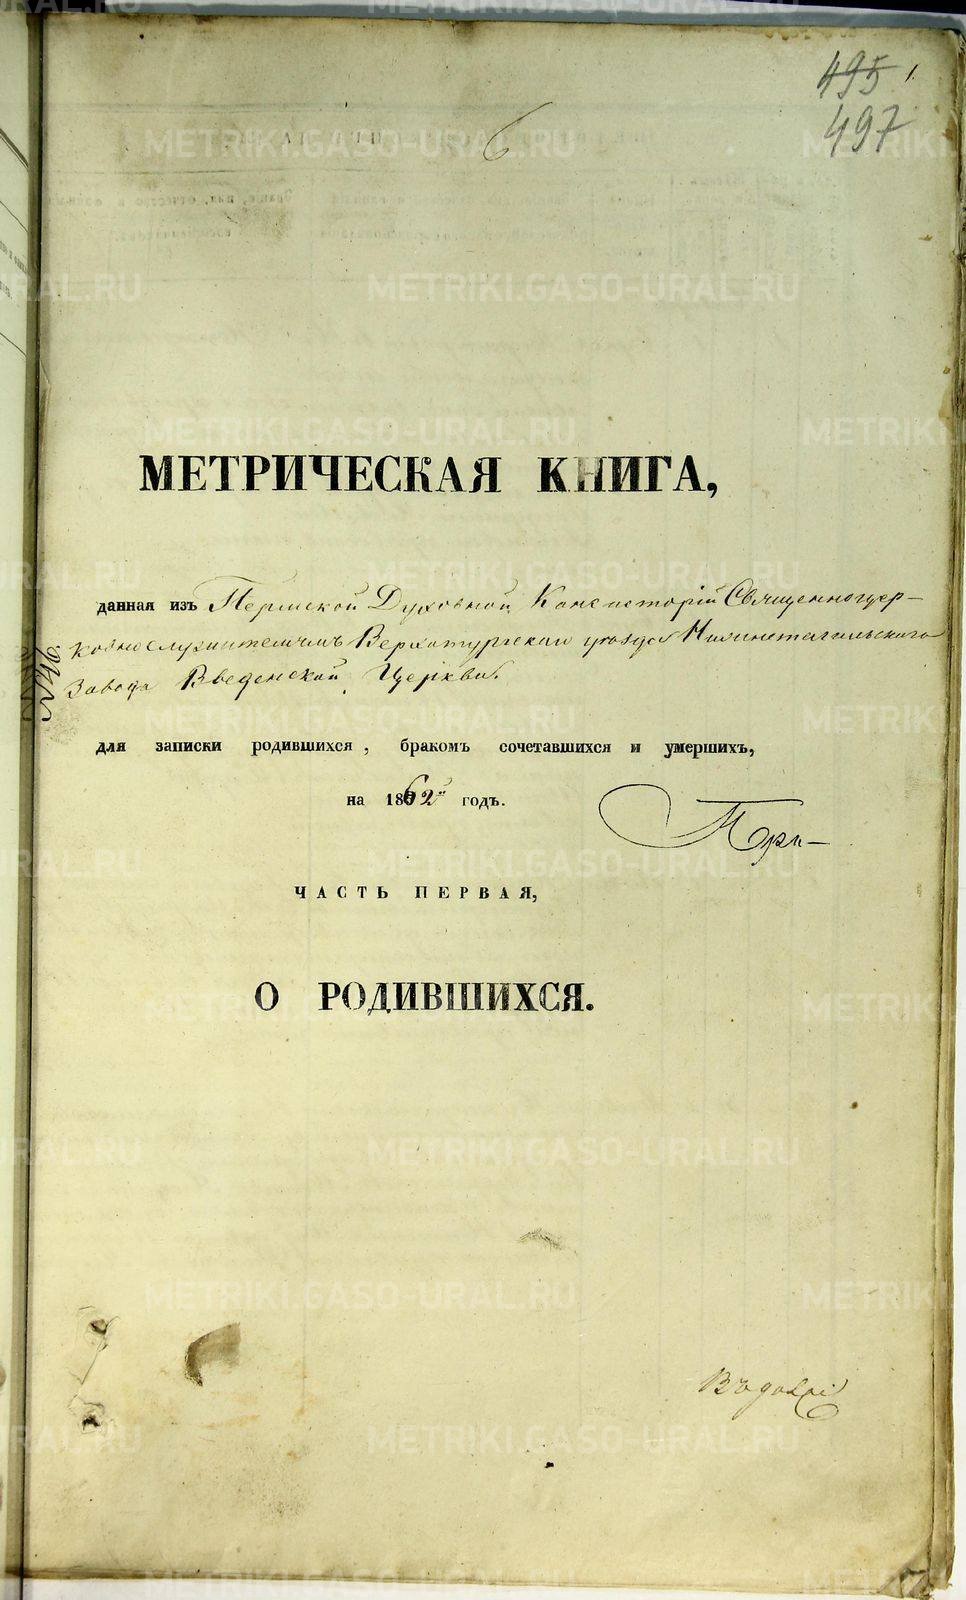 495
497
6
МЕТРИЧЕСКАЯ КНИГА,
данная изъ Пермской Духовной Консисторіи Священноцер-
ковнослужителямъ Верхотурскаго уѣзда Нижнетагильскаго
Завода Введенской Церкви.
для записки родившихся, бракомъ сочетавшихся и умершихъ,
на 1862й годъ.
ЧАСТЬ ПЕРВАЯ,
О РОДИВШИХСЯ.
METRIKI.GASO-URAL.RU